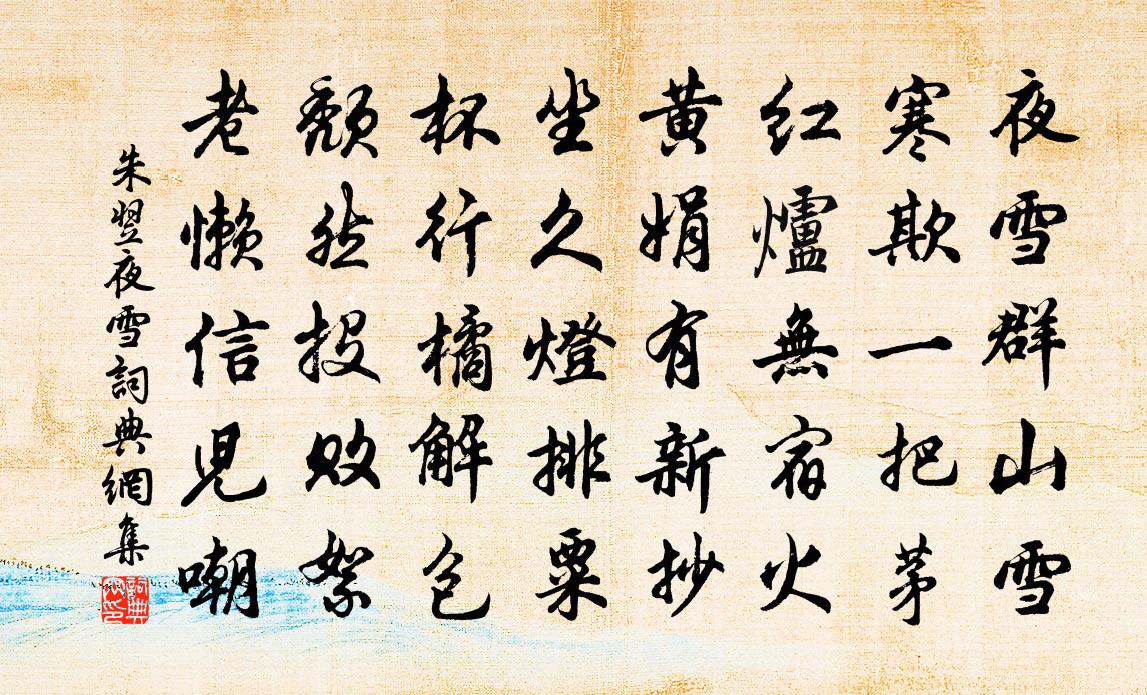 夜雪群山雪
寒欺一把茅
紅爐無宿火
黃娟有新抄
坐久燈排粟
杯行橘解包
頹然投敗絮
老懶信兒嘲
朱翌夜雪詞典網集